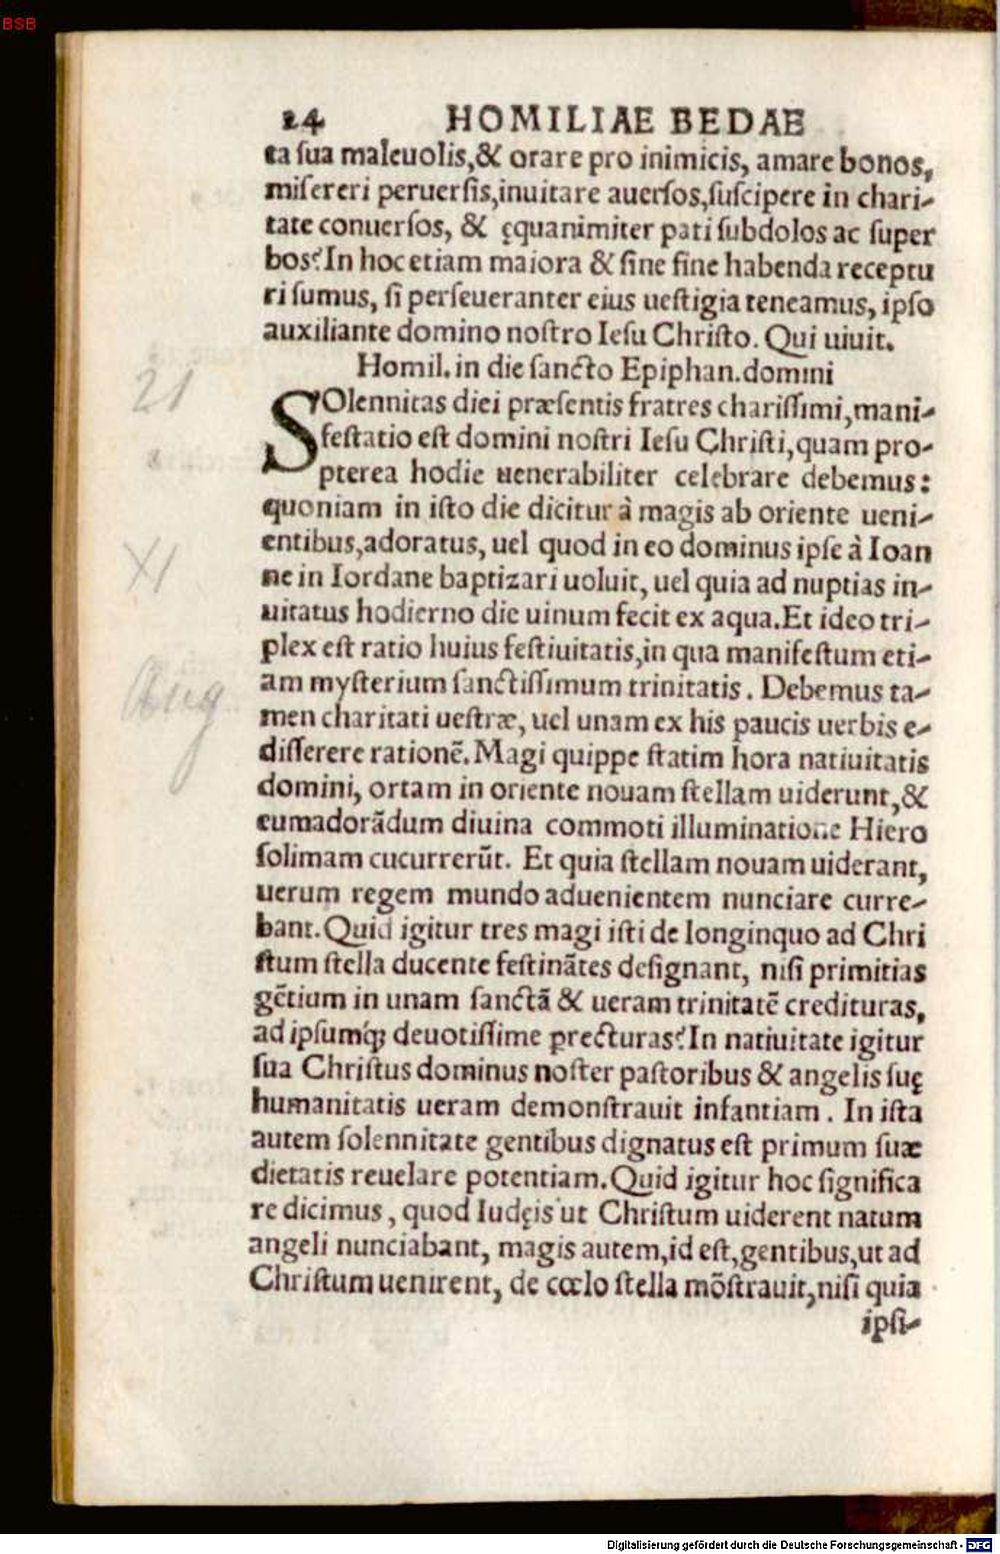 BSB
24 HOMILIAE BEDAE
ta sua maleuolis,& orare pro inimicis, amare bonos,
misereri peruersis,inuitare auersos,suscipere in chari-
tate conuersos, & ęquanimiter pati subdolos ac super
bos? In hoc etiam maiora & sine fine habenda receptu
ri sumus, si perseueranter eius uestigia teneamus, ipso
auxiliante domino nostro Iesu Christo. Qui uiuit.
Homil. in die sancto Epiphan. domini
21
SOlennitas diei præsentis fratres charissimi,mani-
festatio est domini nostri Iesu Christi,quam pro-
pterea hodie uenerabiliter celebrare debemus:
quoniam in isto die dicitur à magis ab oriente ueni-
entibus,adoratus, uel quod in eo dominus ipse à Ioan
XI
ne in Iordane baptizari uoluit, uel quia ad nuptias in-
uitatus hodierno die uinum fecit ex aqua.Et ideo tri-
plex est ratio huius festiuitatis,in qua manifestum eti-
am mysterium sanctissimum trinitatis. Debemus ta-
Aug
men charitati uestræ, uel unam ex his paucis uerbis e-
disserere rationē. Magi quippe statim hora natiuitatis
domini, ortam in oriente nouam stellam uiderunt,&
eumadorãdum diuina commoti illuminatione Hiero
solimam cucurrerūt. Et quia stellam nouam uiderant,
uerum regem mundo aduenientem nunciare curre-
bant. Quid igitur tres magi isti de longinquo ad Chri
stum stella ducente festinãtes designant, nisi primitias
gētium in unam sanctã & ueram trinitatē credituras,
ad ipsumq́; deuotissime precturas? In natiuitate igitur
sua Christus dominus noster pastoribus & angelis suę
humanitatis ueram demonstrauit infantiam. In ista
autem solennitate gentibus dignatus est primum suæ
dietatis reuelare potentiam. Quid igitur hoc significa
re dicimus, quod Iudęis ut Christum uiderent natum
angeli nunciabant, magis autem,id est,gentibus,ut ad
Christum uenirent, de cœlo stella mõstrauit,nisi quia
ipsi-
Digitalisierung gefördert durch die Deutsche Forschungsgemeinschaft - DFG